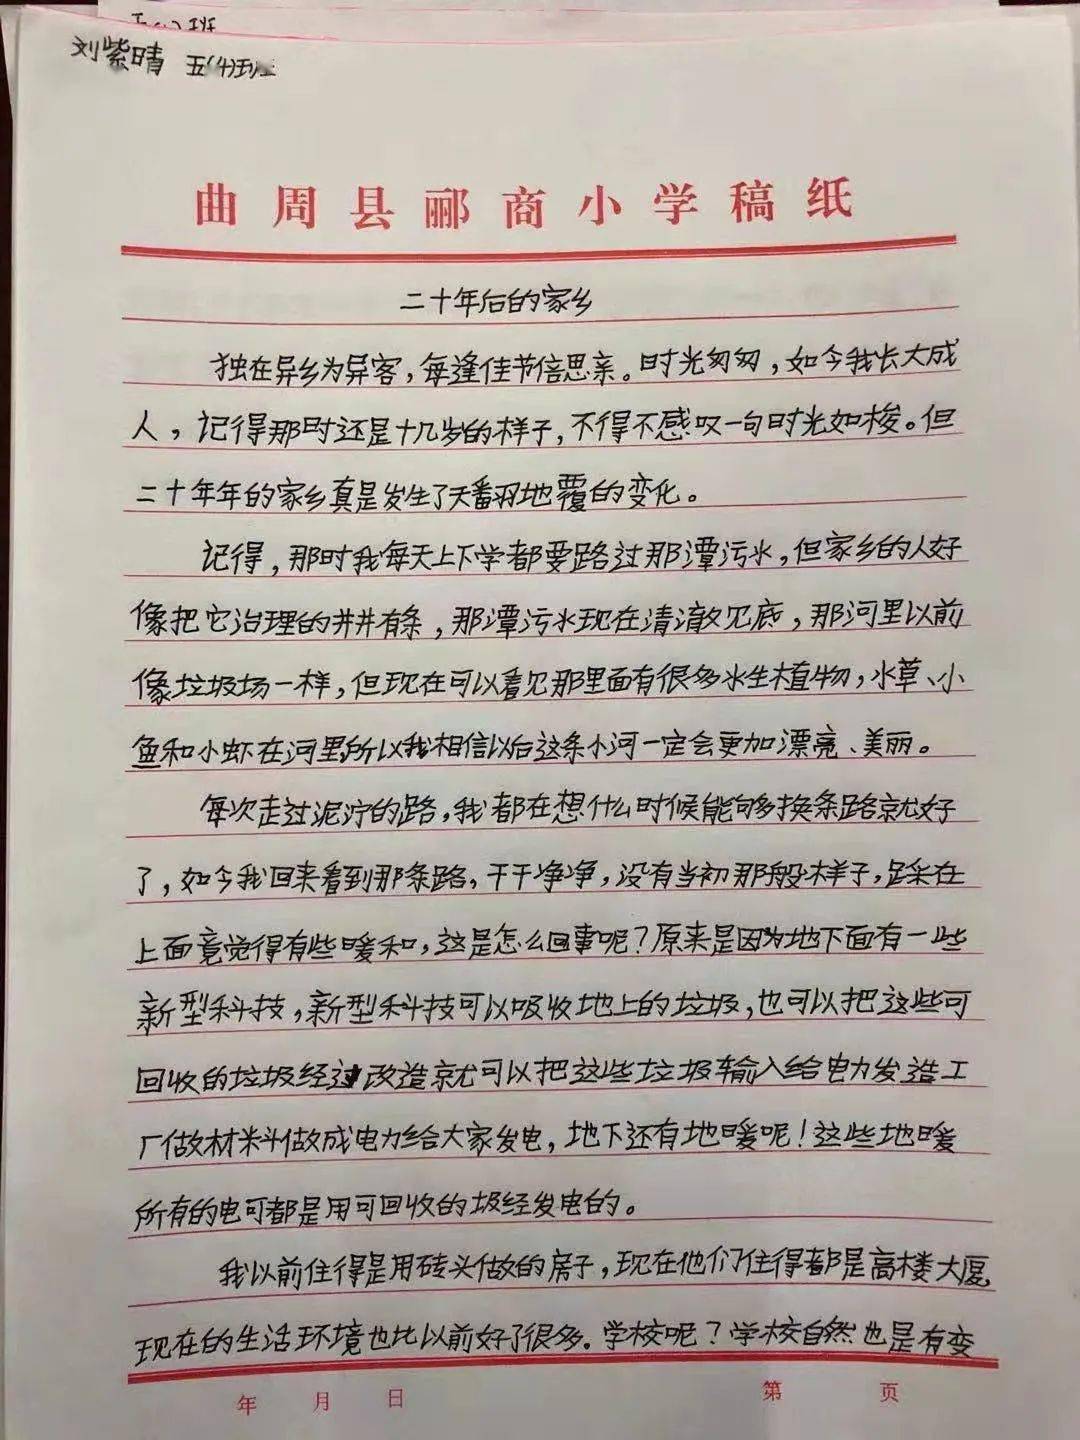 五( )班
刘紫晴 五(4)班
曲周县郦商小学稿纸
二十年后的家乡
独在异乡为异客，每逢佳节倍思亲。时光匆匆，如今我长大成
人，记得那时还是十几岁的样子，不得不感叹一句时光如梭。但
二十年年的家乡真是发生了天翻地覆的变化。
记得，那时我每天上下学都要路过那潭污水，但家乡的人好
像把它治理的井井有条，那潭污水现在清澈见底，那河里以前
像垃圾场一样，但现在可以看见那里面有很多水生植物，水草、小
鱼和小虾在河里所以我相信以后这条小河一定会更加漂亮、美丽。
每次走过泥泞的路，我都在想什么时候能够换条路就好
了，如今我回来看到那条路，干干净净，没有当初那般样子，踩在
上面竟觉得有些暖和，这是怎么回事呢？原来是因为地下面有一些
新型科技，新型科技可以吸收地上的垃圾，也可以把这些可
回收的垃圾经过改造就可以把这些垃圾输入给电力发造工
厂做材料做成电力给大家发电，地下还有地暖呢！这些地暖
所有的电可都是用可回收的圾经发电的。
我以前住得是用砖头做的房子，现在他们住得都是高楼大厦，
现在的生活环境也比以前好了很多。学校呢？学校自然也是有变
年 月 日 第 页